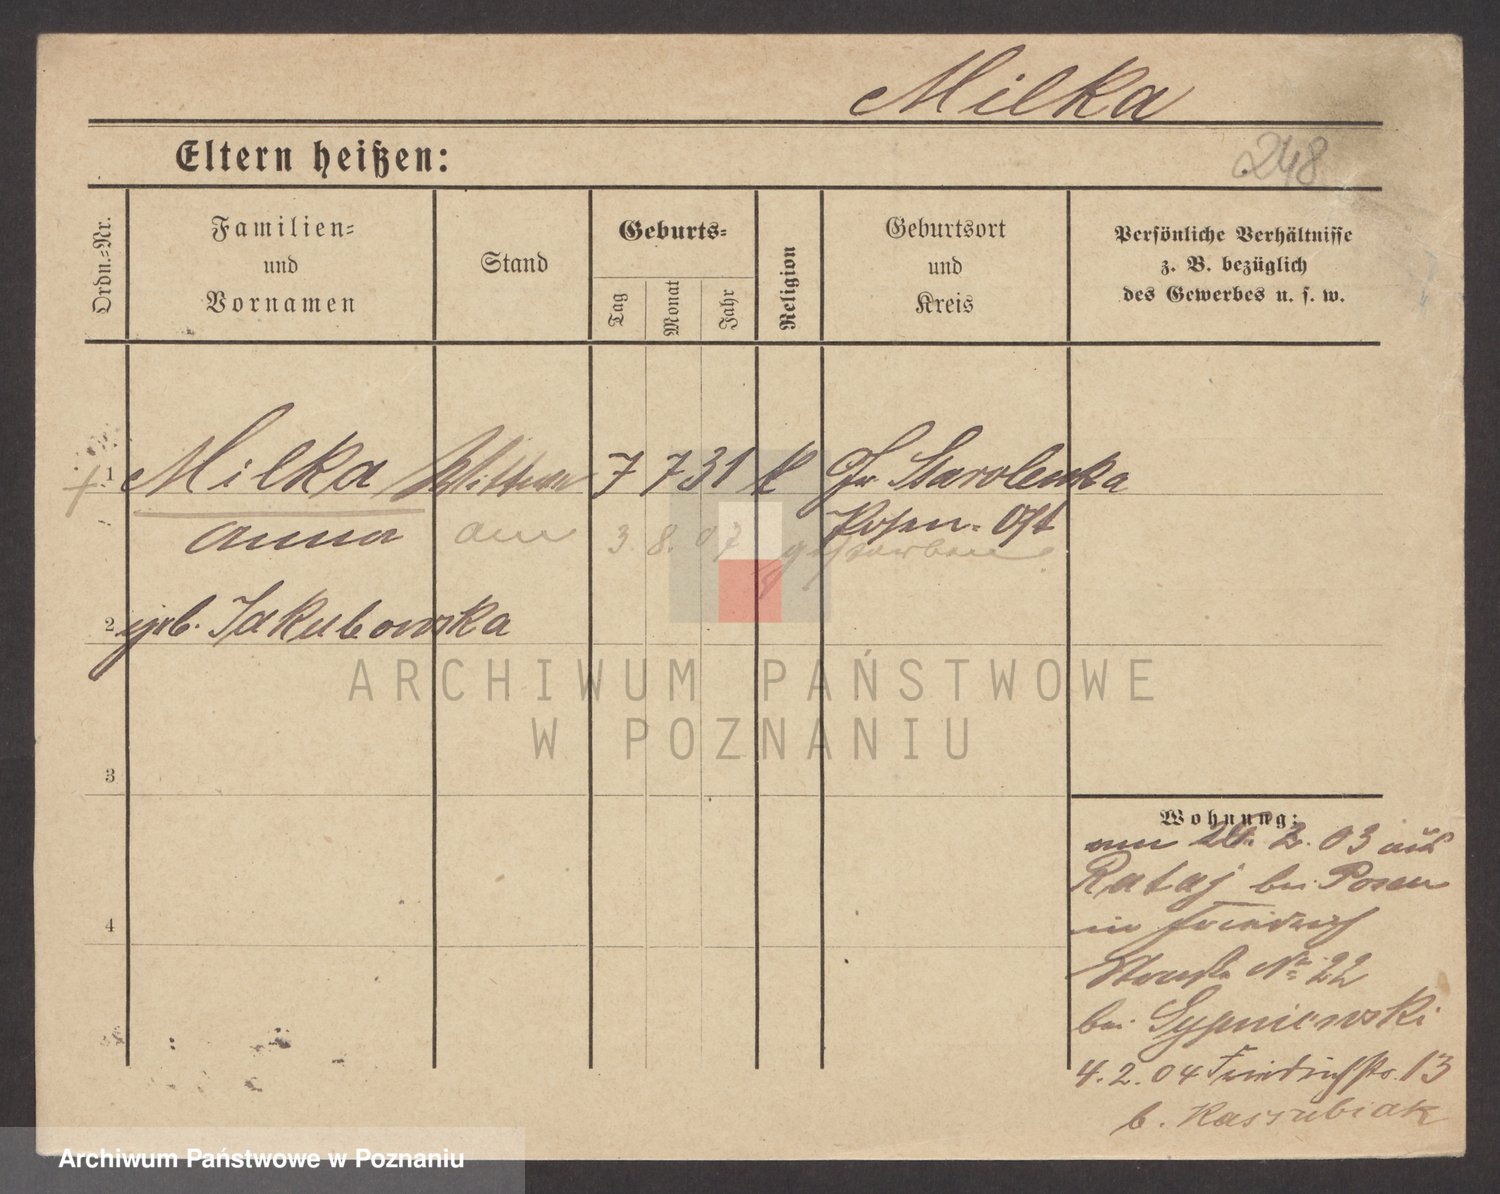 Milka
Eltern heißen:
248
Ordn.-Nr.
Familien-
und
Vornamen
Stand
Geburts-
Tag
Monat
Jahr
Religion
Geburtsort
und
Kreis
Persönliche Verhältnisse
z. B. bezüglich
des Gewerbes u. s. w.
1 Milka Wittwe 7 7 31 k Gr. Starolenka
Anna Posen-Ost
am 3. 8. 07 gestorben
2 geb. Jakubowska
3
4
Wohnung:
am 24. 2. 03 aus
Rataj bei Posen
in Friedrich
Straße No 22
bei Sypniewski
4. 2. 04 Friedrichstr. 13
b. Kassubiak
ARCHIWUM PAŃSTWOWE
W POZNANIU
Archiwum Państwowe w Poznaniu